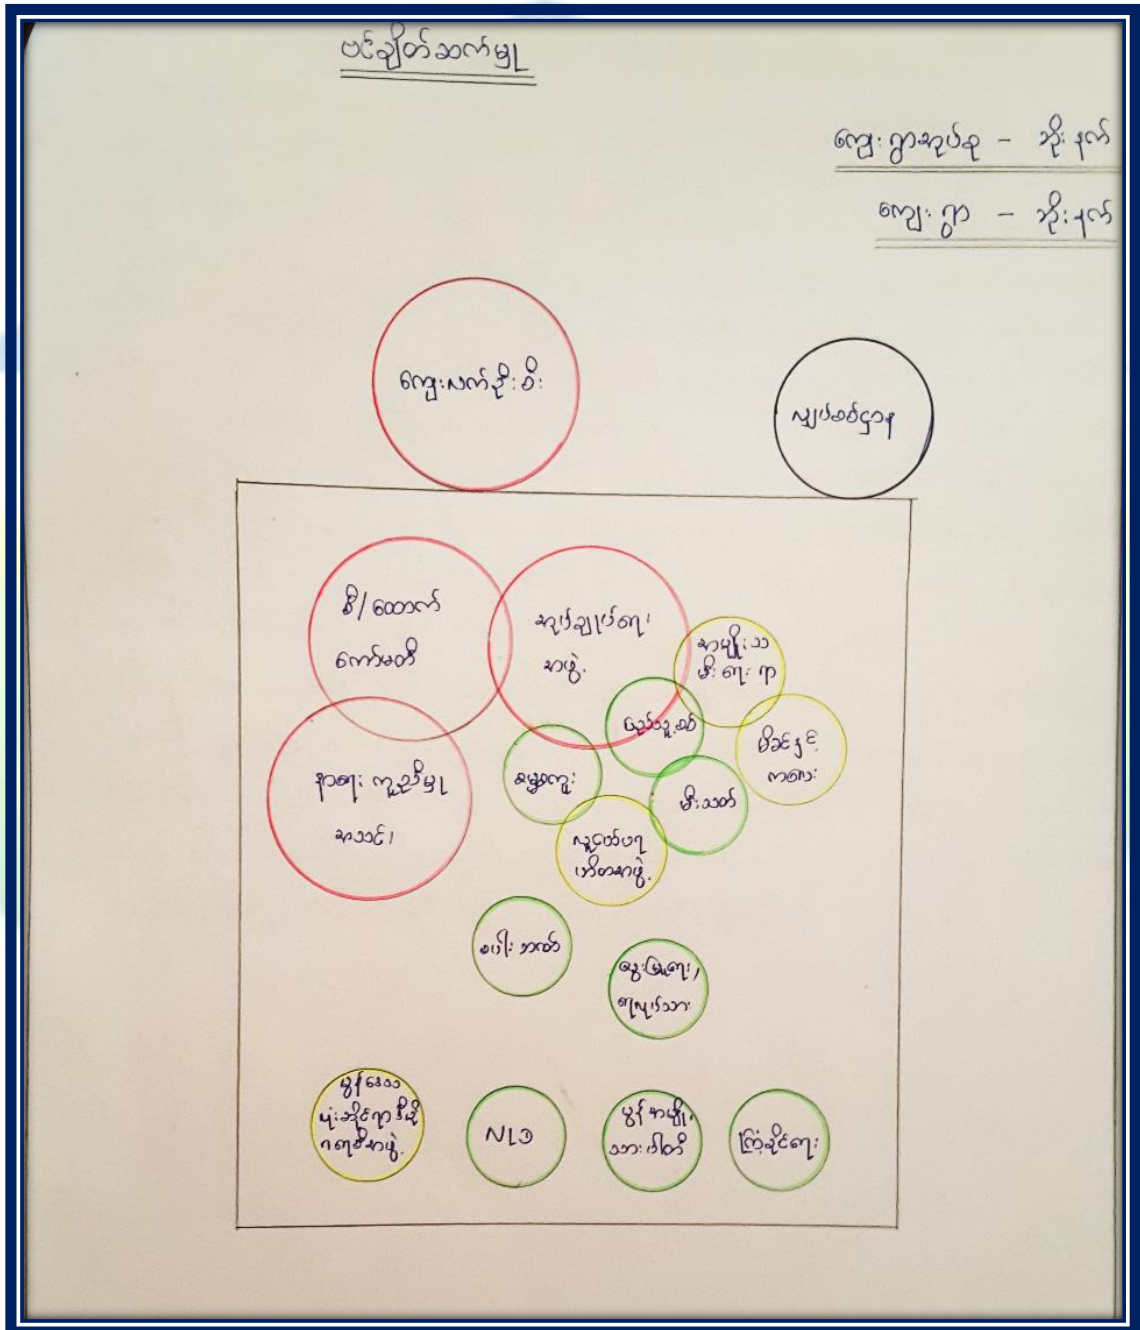 ဗင်ချိတ်ဆက်မှု
ကျေးရွာအုပ်စု - ဘိုးနက်
ကျေးရွာ - ဘိုးနက်
ကျေးလက်ဦးစီး
လျှပ်စစ်ဌာန
စီ/ထောက်
ကော်မတီ
အုပ်ချုပ်ရေး
အဖွဲ့
အမျိုးသ
မီးရေးရာ
ပြည်သူ့စစ်
မိခင်နှင့်
ကလေး
နာရေးကူညီမှု
အသင်း
ဓမ္မစကူး
မီးသတ်
လူငယ်ပရ
ဟိတအဖွဲ့
စပါးဘဏ်
မွေးမြူရေး/
ရေလုပ်သား
မွန်ဒေသ
လုံးဆိုင်ရာဒီမို
ကရေစီအဖွဲ့
NLD
မွန်အမျိုး
သားပါတီ
ကြံ့ခိုင်ရေး